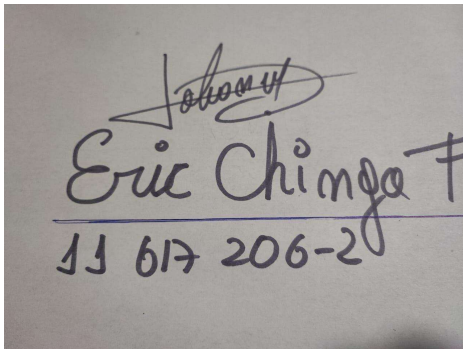 Johonny
Eric Chinga F
11 617 206-2